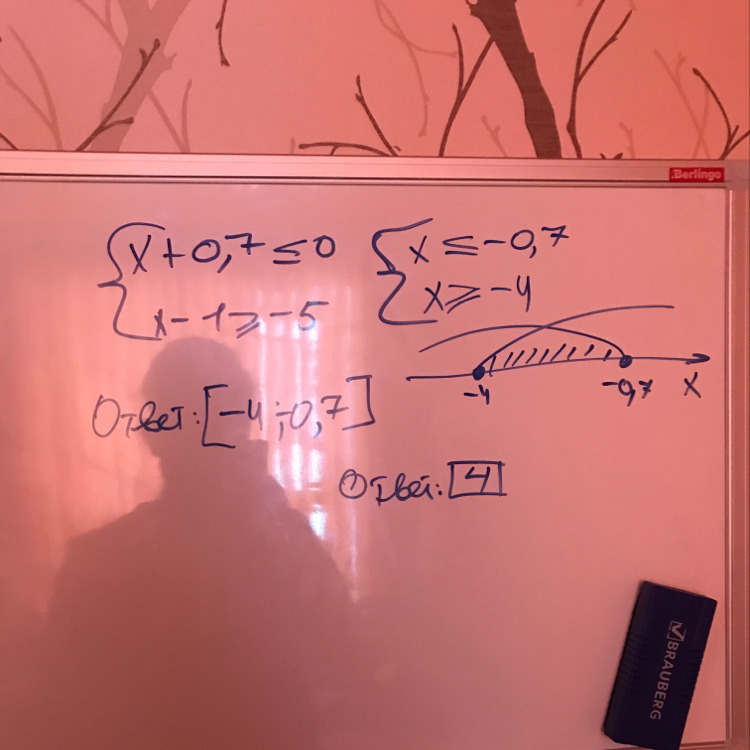 Berlingo
{x+0,7≤0
x-1≥-5
{x≤-0,7
x≥-4
-4 -0,7 x
Ответ: [-4;-0,7]
Ответ: 4
BRAUBERG